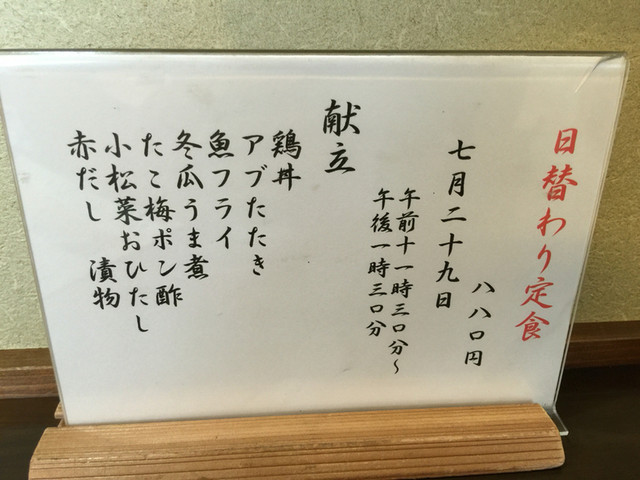 日替わり定食
八八〇円
七月二十九日
午前十一時三〇分～
午後一時三〇分
献立
鶏丼
アブたたき
魚フライ
冬瓜うま煮
たこ梅ポン酢
小松菜おひたし
赤だし　漬物